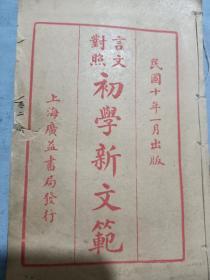 民國十年一月出版
言文
對照
初學新文範
上海廣益書局發行